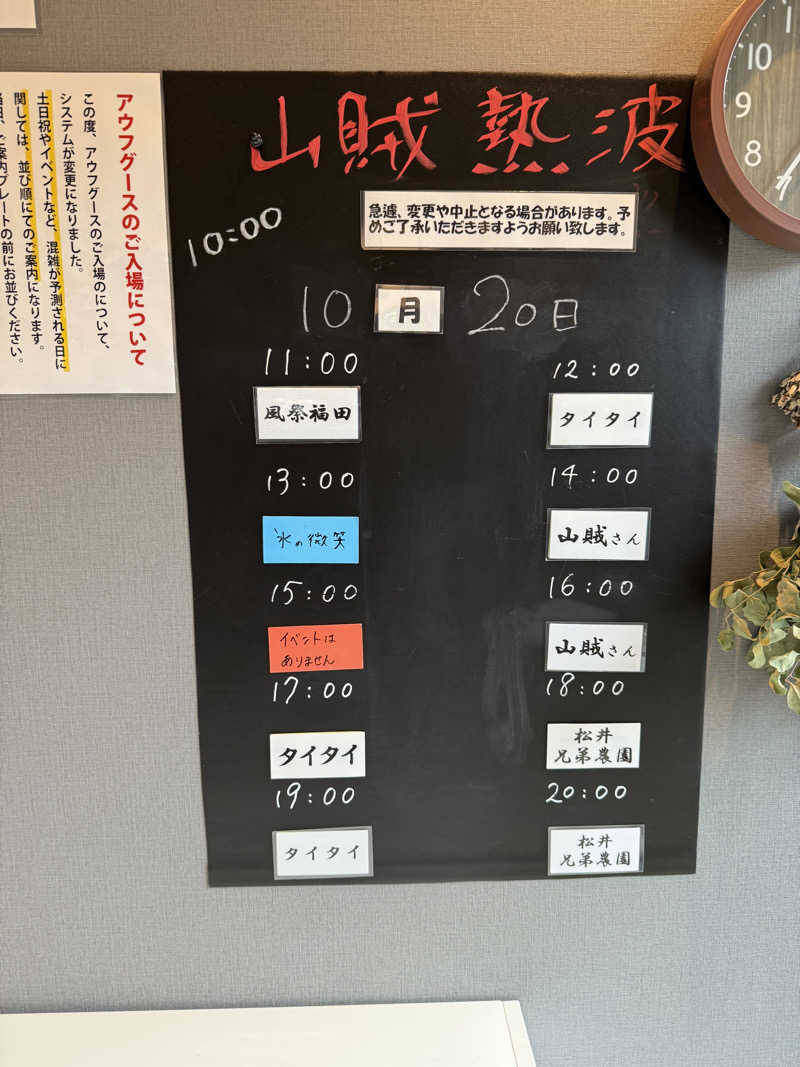 山賊熱波
急遽、変更や中止となる場合があります。予
めご了承いただきますようお願い致します。
10:00
10月20日
11:00
風祭福田
12:00
タイタイ
13:00
氷の微笑
14:00
山賊さん
15:00
イベントは
ありません
16:00
山賊さん
17:00
タイタイ
18:00
松井
兄弟農園
19:00
タイタイ
20:00
松井
兄弟農園
アウフグースのご入場について
この度、アウフグースのご入場のについて、
システムが変更になりました。
土日祝やイベントなど、混雑が予測される日に
関しては、並び順にてのご案内になります。
当日、ご案内プレートの前にお並びください。
1
10
9
8
7